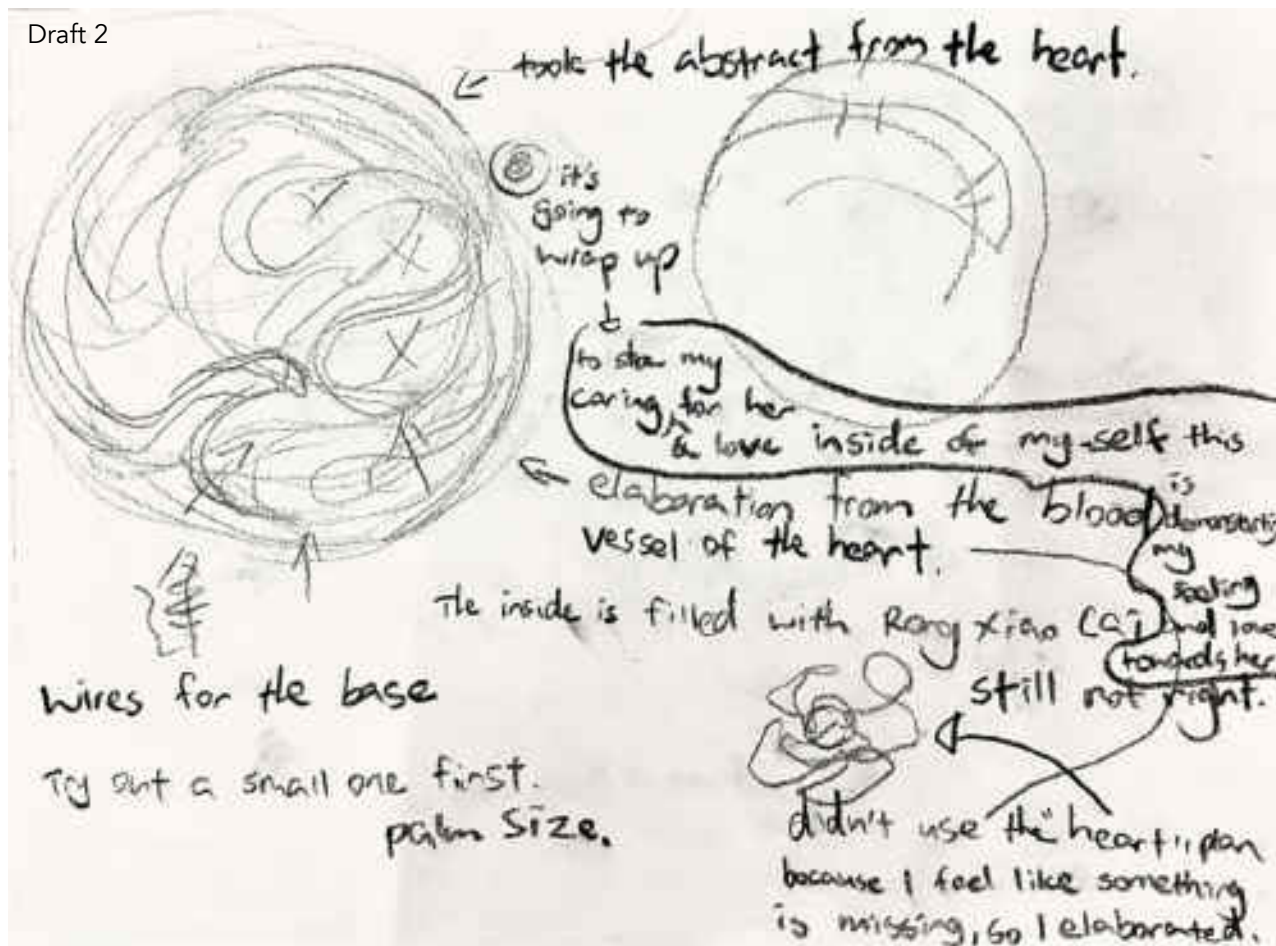 Draft 2
took the abstract from the heart.
it's
going to
wrap up
to show my
caring for her
& love inside of my self this
is
my
feeling
and love
towards her
elaboration from the blood
vessel of the heart.
The inside is filled with Rong Xiao Cai
still not right.
wires for the base
Try out a small one first.
palm size.
didn't use the "heart" plan
because I feel like something
is missing, so I elaborated.